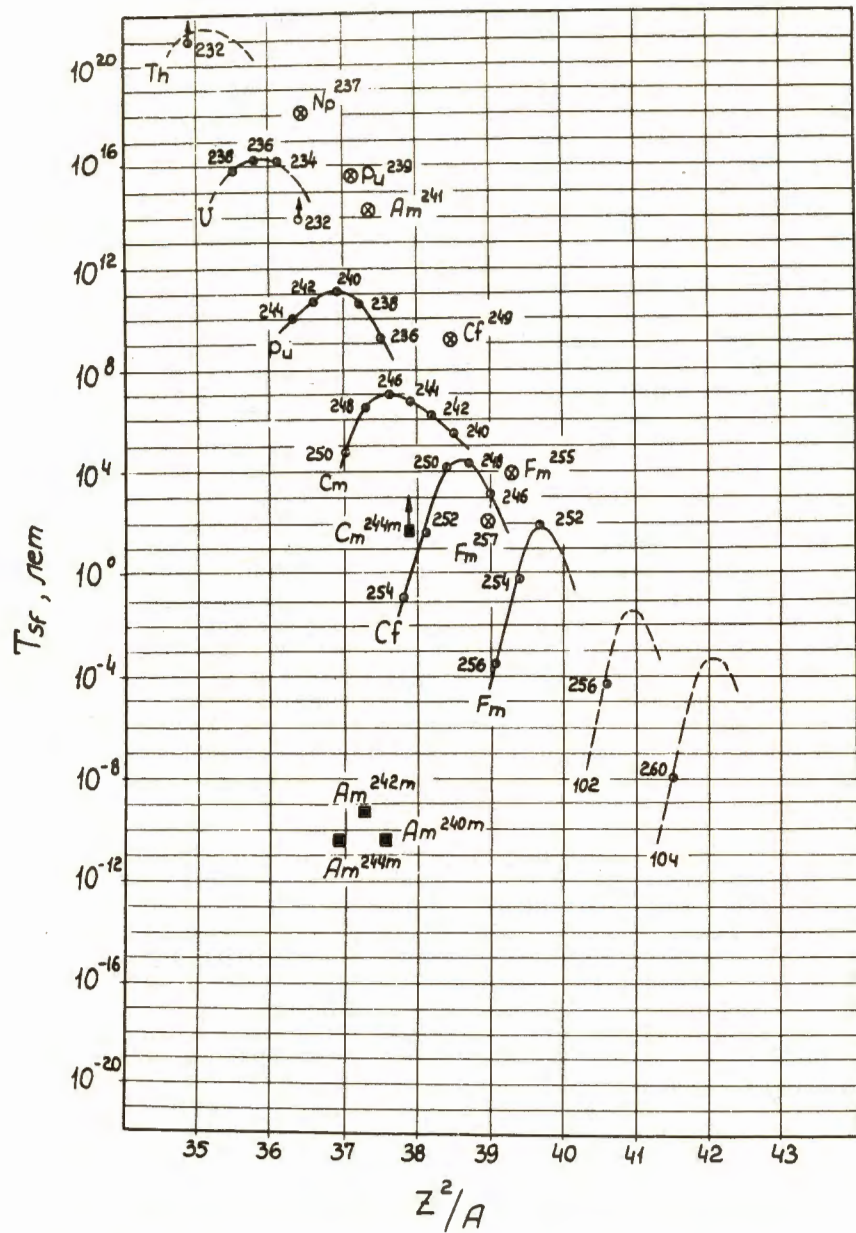 10²⁰
10¹⁶
10¹²
10⁸
10⁴
10⁰
10⁻⁴
10⁻⁸
10⁻¹²
10⁻¹⁶
10⁻²⁰
T sf, лет
232
Th
Np²³⁷
238
236
234
232
U
Pu²³⁹
Am²⁴¹
244
242
240
238
236
Pu
Cf²⁴⁹
250
248
246
244
242
240
Cm
Cm²⁴⁴ᵐ
250
248
246
252
254
Cf
Fm²⁵⁵
Fm²⁵⁷
252
254
256
Fm
256
102
260
104
Am²⁴²ᵐ
Am²⁴⁰ᵐ
Am²⁴⁴ᵐ
35 36 37 38 39 40 41 42 43
Z²/A